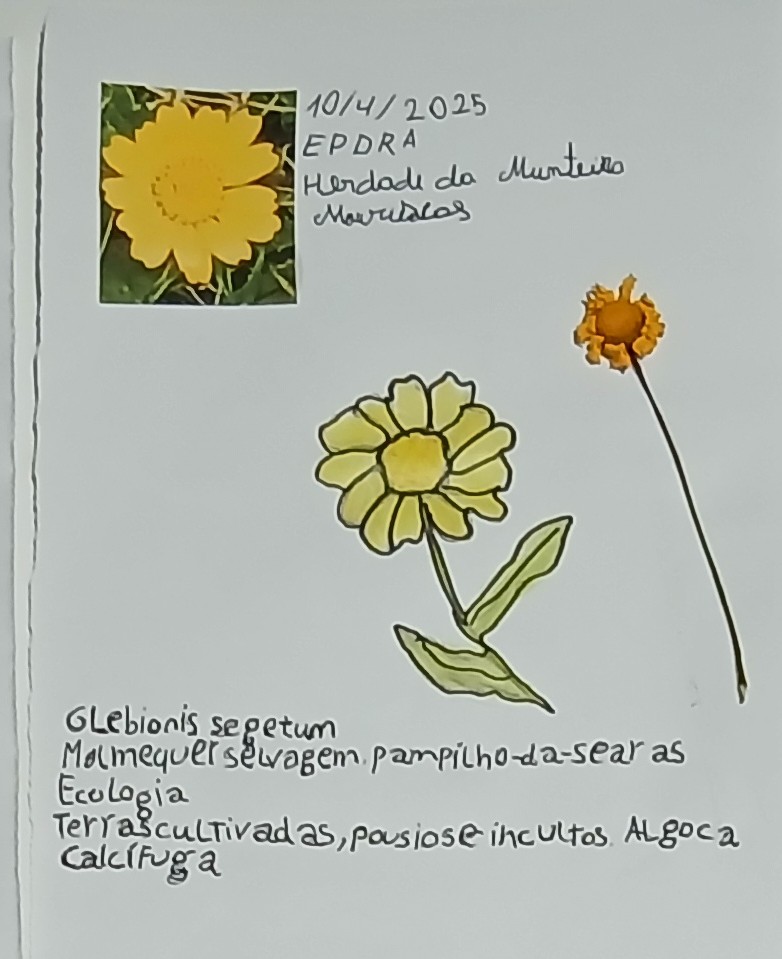 10/4/2025
EPDRA
Herdade da Munteiro
Mouriscas
Glebionis segetum
Malmequer selvagem. pampilho-da-searas
Ecologia
Terras cultivadas, pousios e incultos. Algo ca
calcífuga